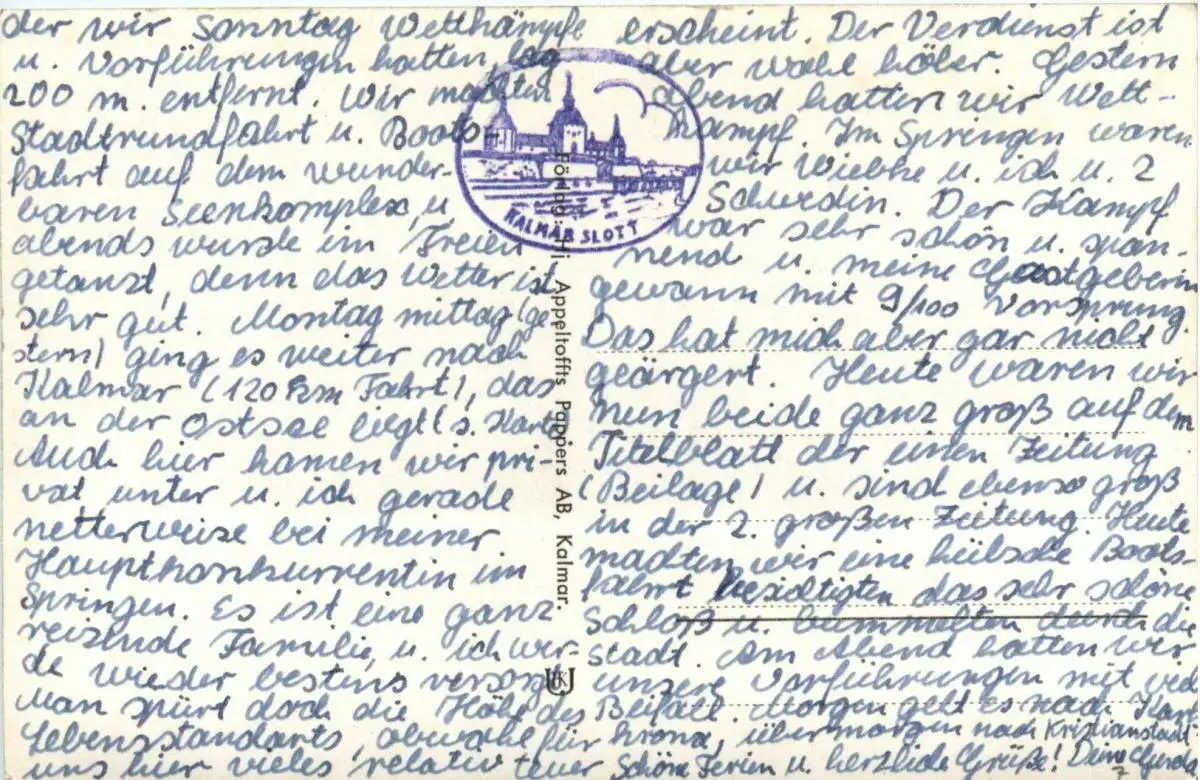 der wir Sonntag Wettkämpfe
u. Vorführungen hatten, lag
200 m. entfernt. Wir machten
Stadtrundfahrt u. Boots-
fahrt auf dem wunder-
baren Seenkomplex, u.
abends wurde im Freien
getanzt, denn das Wetter ist
sehr gut. Montag mittag (ge-
stern) ging es weiter nach
Kalmar (120 km Fahrt), das
an der Ostsee liegt (s. Karte
Auch hier kamen wir pri-
vat unter u. ich gerade
netterweise bei meiner
Hauptkonkurrentin im
Springen. Es ist eine ganz
reizende Familie, u. ich wer-
de wieder bestens versorgt
Man spürt doch die Höhe des
Lebensstandarts, obwohl für
uns hier vieles relativ teuer
erscheint. Der Verdienst ist
aber wohl höher. Gestern
abend hatten wir Wett-
kampf. Im Springen waren
wir Wiebke u. ich u. 2
Schwedin. Der Kampf
war sehr schön u. span-
nend u. meine Gastgeberin
gewann mit 9/100 Vorsprung
Das hat mich aber gar nicht
geärgert. Heute waren wir
nun beide ganz groß auf dem
Titelblatt der einen Zeitung
(Beilage) u. sind ebenso groß
in der 2. großen Zeitung. Heute
machten wir eine hübsche Boots-
fahrt besichtigten das sehr schöne
Schloß u. bummelten durch die
Stadt. Am Abend hatten wir
unsere Vorführungen mit viel
Beifall. Morgen geht es nach Karls
krona, übermorgen nach Kristianstad.
Schöne Ferien u. herzliche Grüße! Deine
KALMAR SLOTT
Förlag: Hj Appeltoffts Pappers AB, Kalmar.